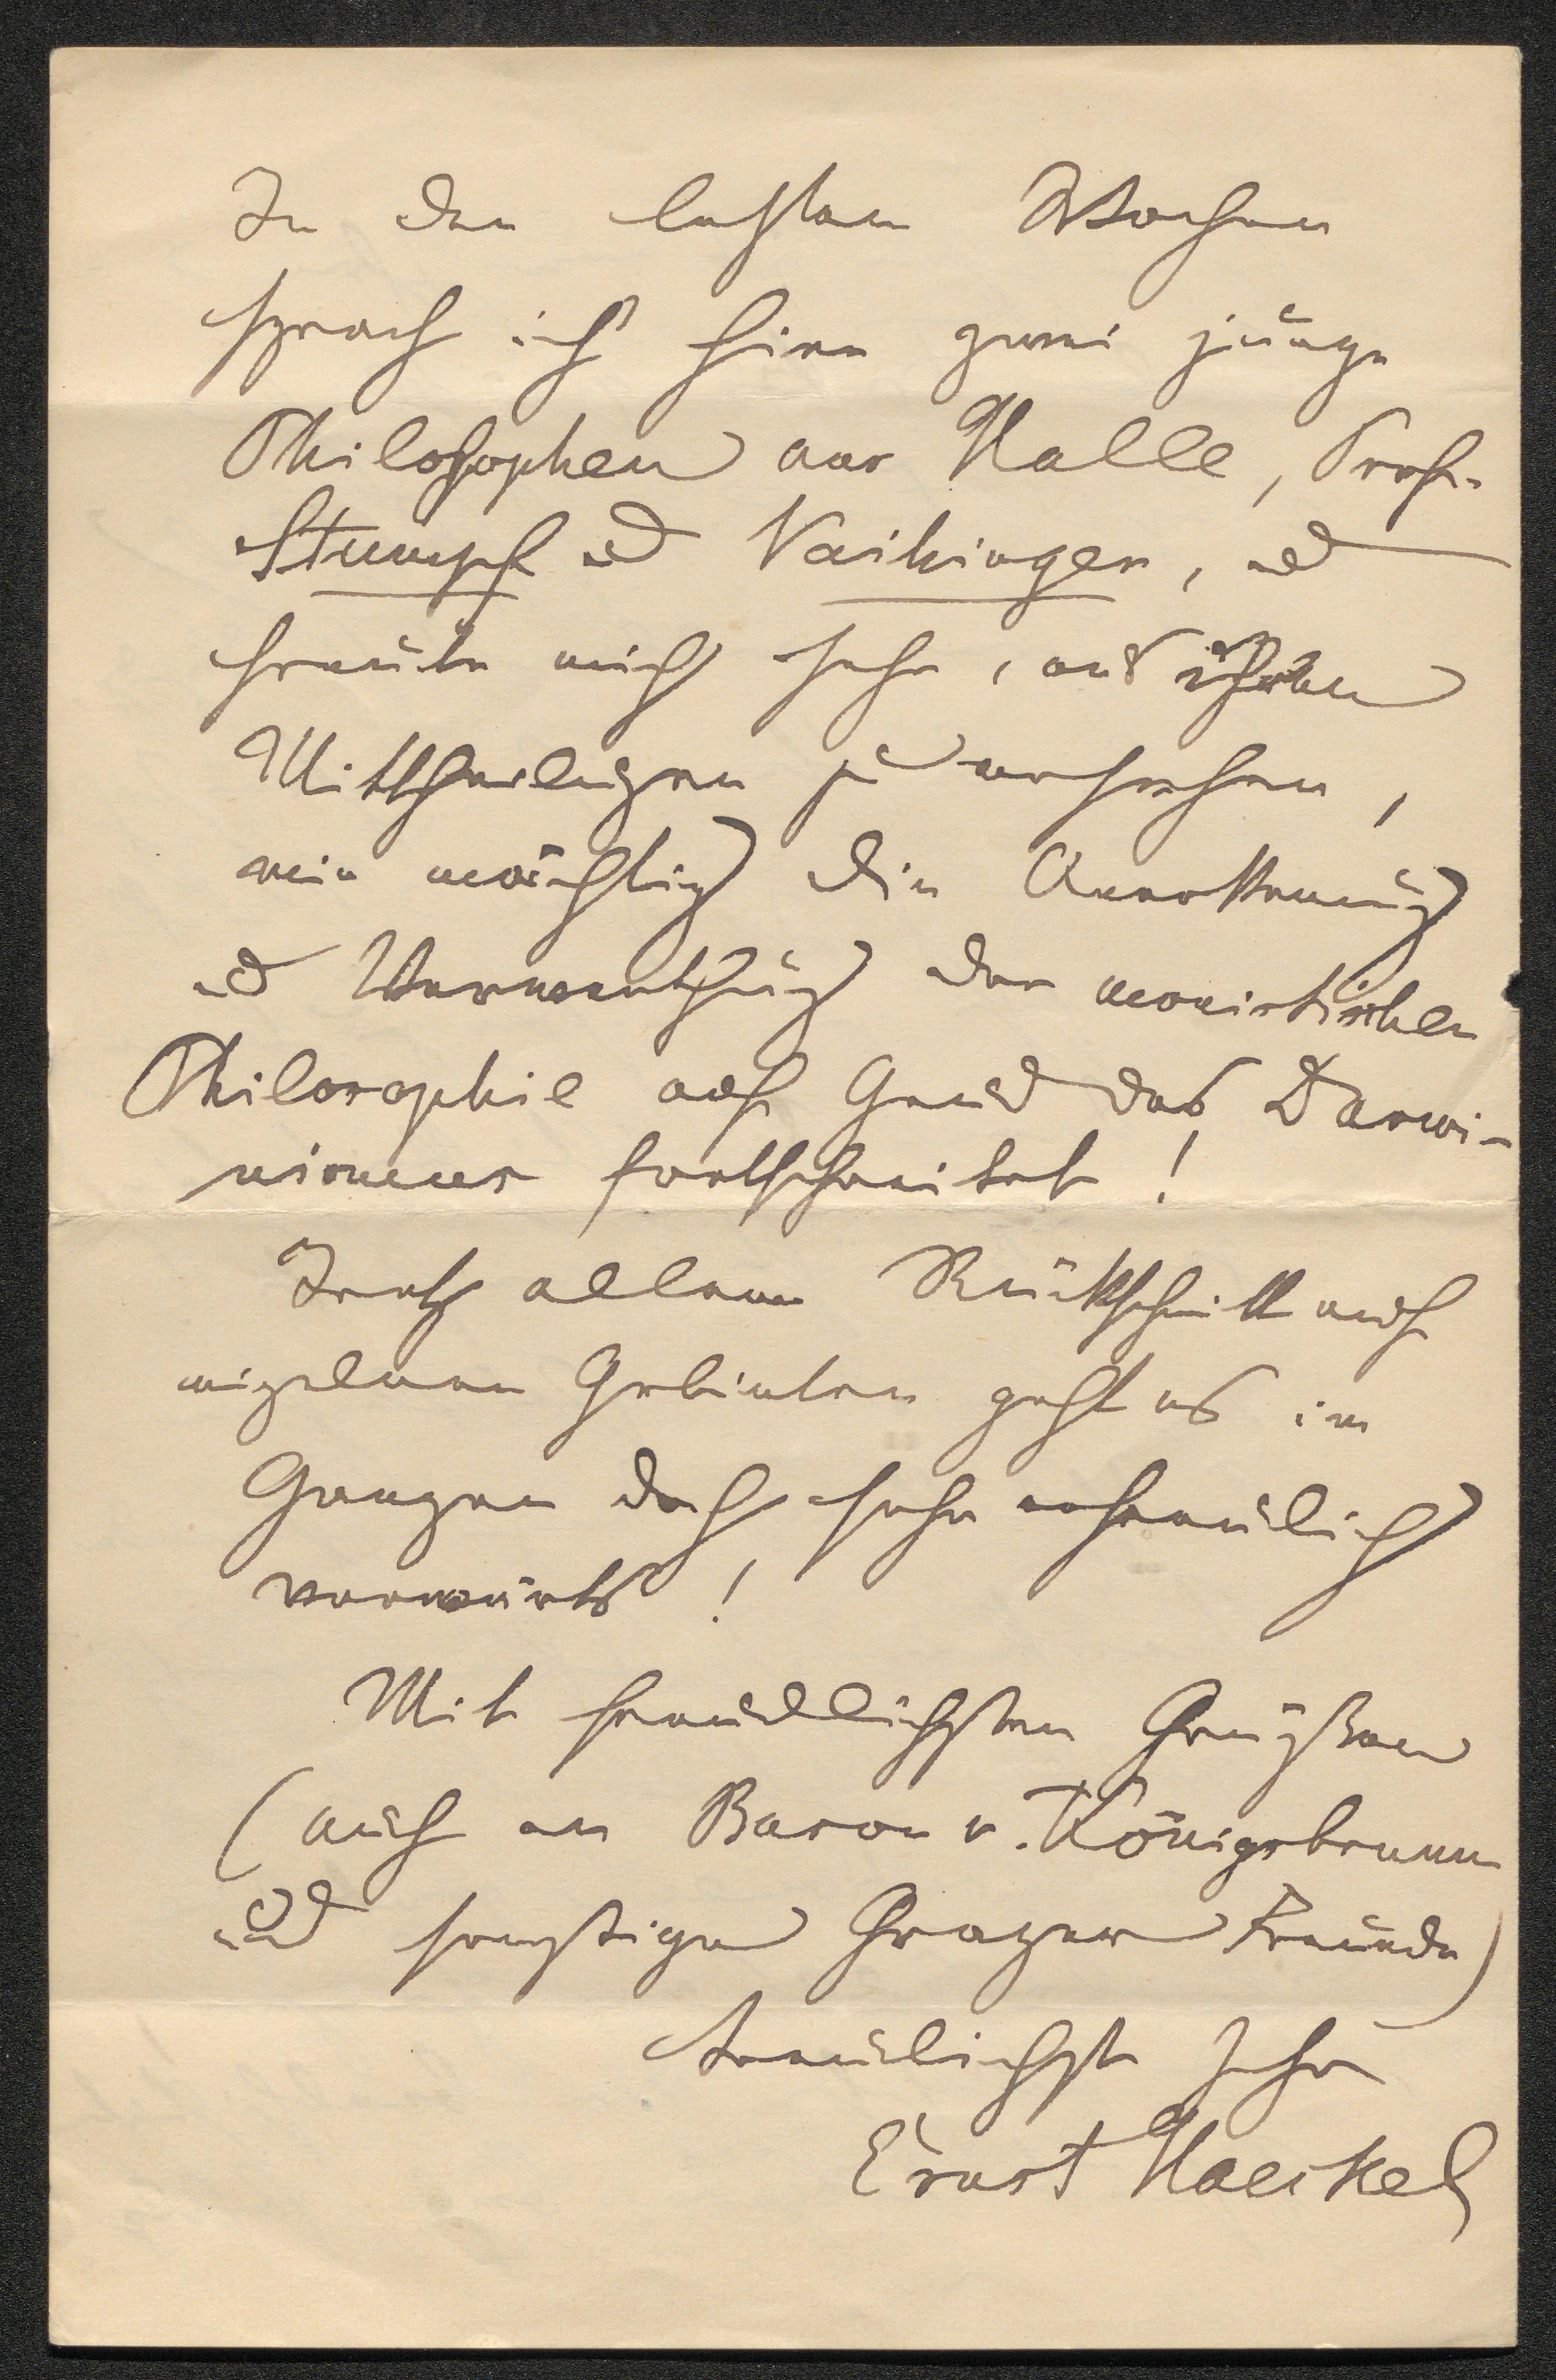 In den letzten Wochen
sprach ich hier zwei junge
Philosophen aus Halle, Prof.
Stumpf und Vaihinger, und
freute mich sehr, aus ihren
Mittheilungen zu ersehen,
wie mächtig die Anerkennung
und Verwerthung der monistischen
Philosophie auf Grund des Darwi-
nismus fortschreitet!
Trotz allem Rückschritt auf
einzelnen Gebieten geht es im
Ganzen doch sehr erfreulich
vorwärts!
Mit freundlichsten Grüßen
(auch an Baron v. Königsbrunn
und sonstige Grazer Freunde)
treulichst Ihr
Ernst Haeckel